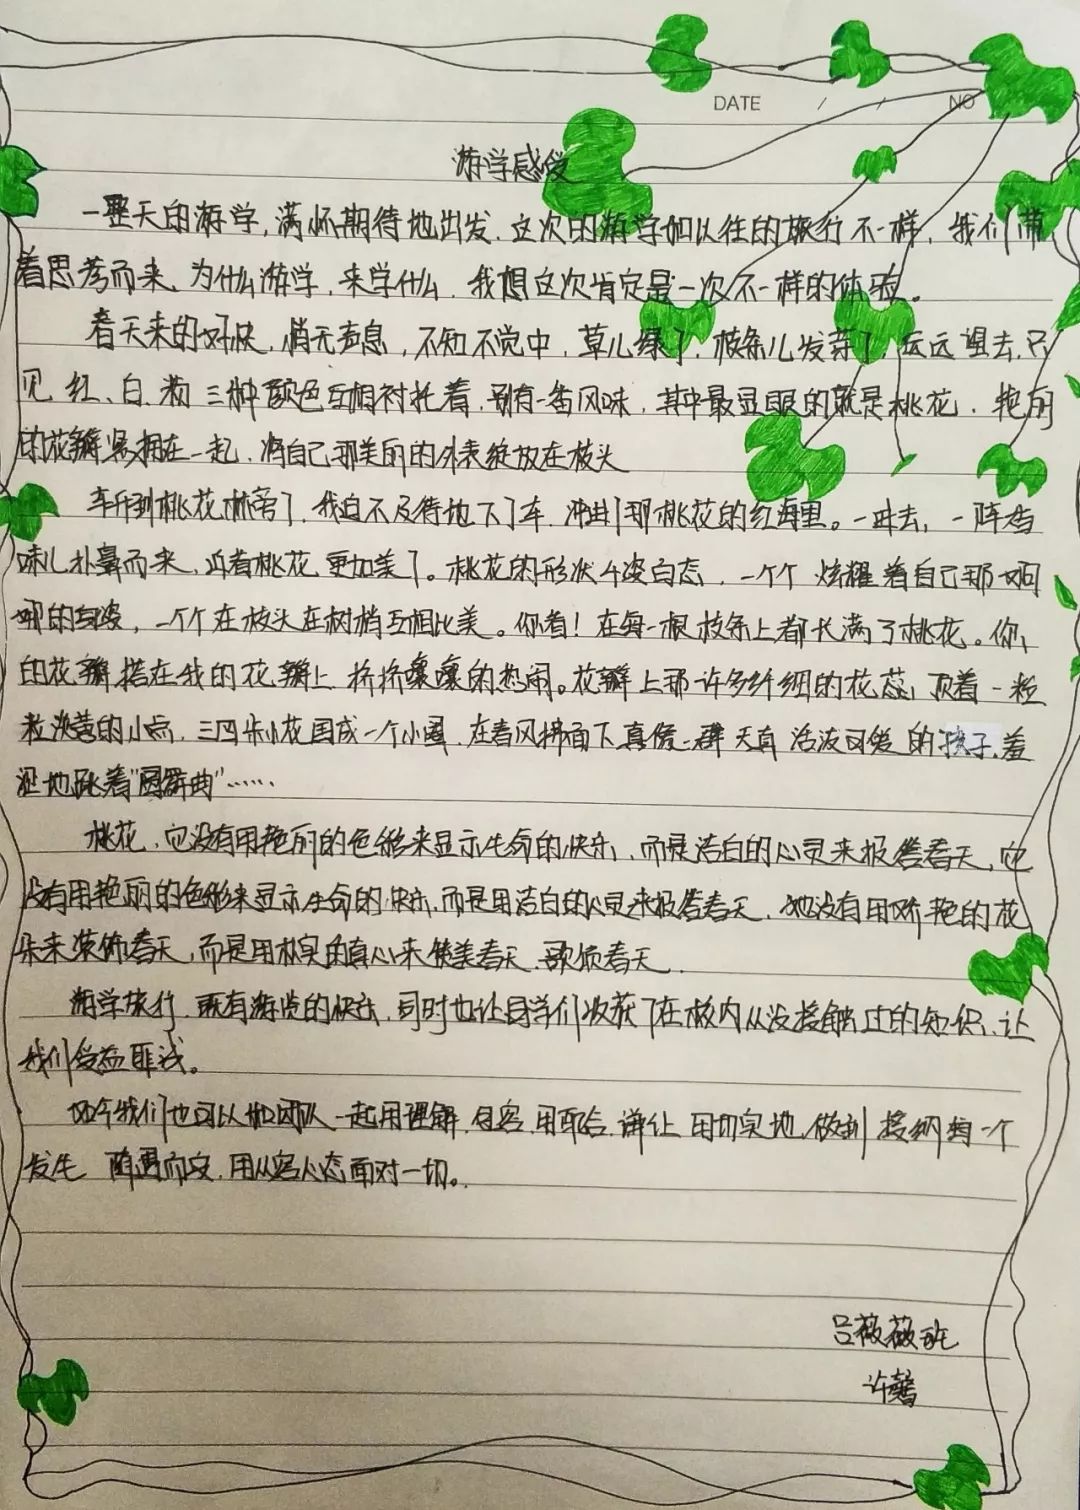 DATE / / NO
游学感受
一整天的游学,满怀期待地出发.这次的游学和以往的旅行不一样,我们带
着思考而来.为什么游学,来学什么.我想这次肯定是一次不一样的体验。
春天来的好快,悄无声息,不知不觉中,草儿绿了,枝条儿发芽了,远远望去,只
见红、白、粉三种颜色互相衬托着,别有一番风味,其中最显眼的就是桃花.艳丽
的花瓣紧拥在一起,将自己那美丽的外表绽放在枝头
车开到桃花林旁了,我迫不及待地下了车,冲进那桃花的红海里。一进去,一阵香
味儿扑鼻而来,近看桃花更加美了。桃花的形状千姿百态,一个个炫耀着自己那婀
娜的身姿,一个个在枝头在树梢互相比美。你看!在每一根枝条上都长满了桃花。你
的花瓣搭在我的花瓣上,挤挤嚷嚷的热闹。花瓣上那许多纤细的花蕊,顶着一粒
粒淡黄的小点,三四朵小花围成一个小圈,在春风拂面下真像一群天真活泼可爱的孩子,羞
涩地跳着"圆舞曲"……
桃花,它没有用艳丽的色彩来显示生命的快乐,而是洁白的心灵来报答春天,它
没有用艳丽的色彩来显示生命的快乐,而是用洁白的心灵来报答春天.她没有用娇艳的花
朵来装饰春天,而是用朴实的真心来赞美春天.歌颂春天.
游学旅行,既有游览的快乐,同时也让同学们收获了在校内从没接触过的知识,让
我们受益匪浅。
如今我们也可以和团队一起用理解.包容.用配合.谦让 用切实地.做到 接纳每一个
发生 随遇而安,用从容心态面对一切。
吕薇薇班
许馨